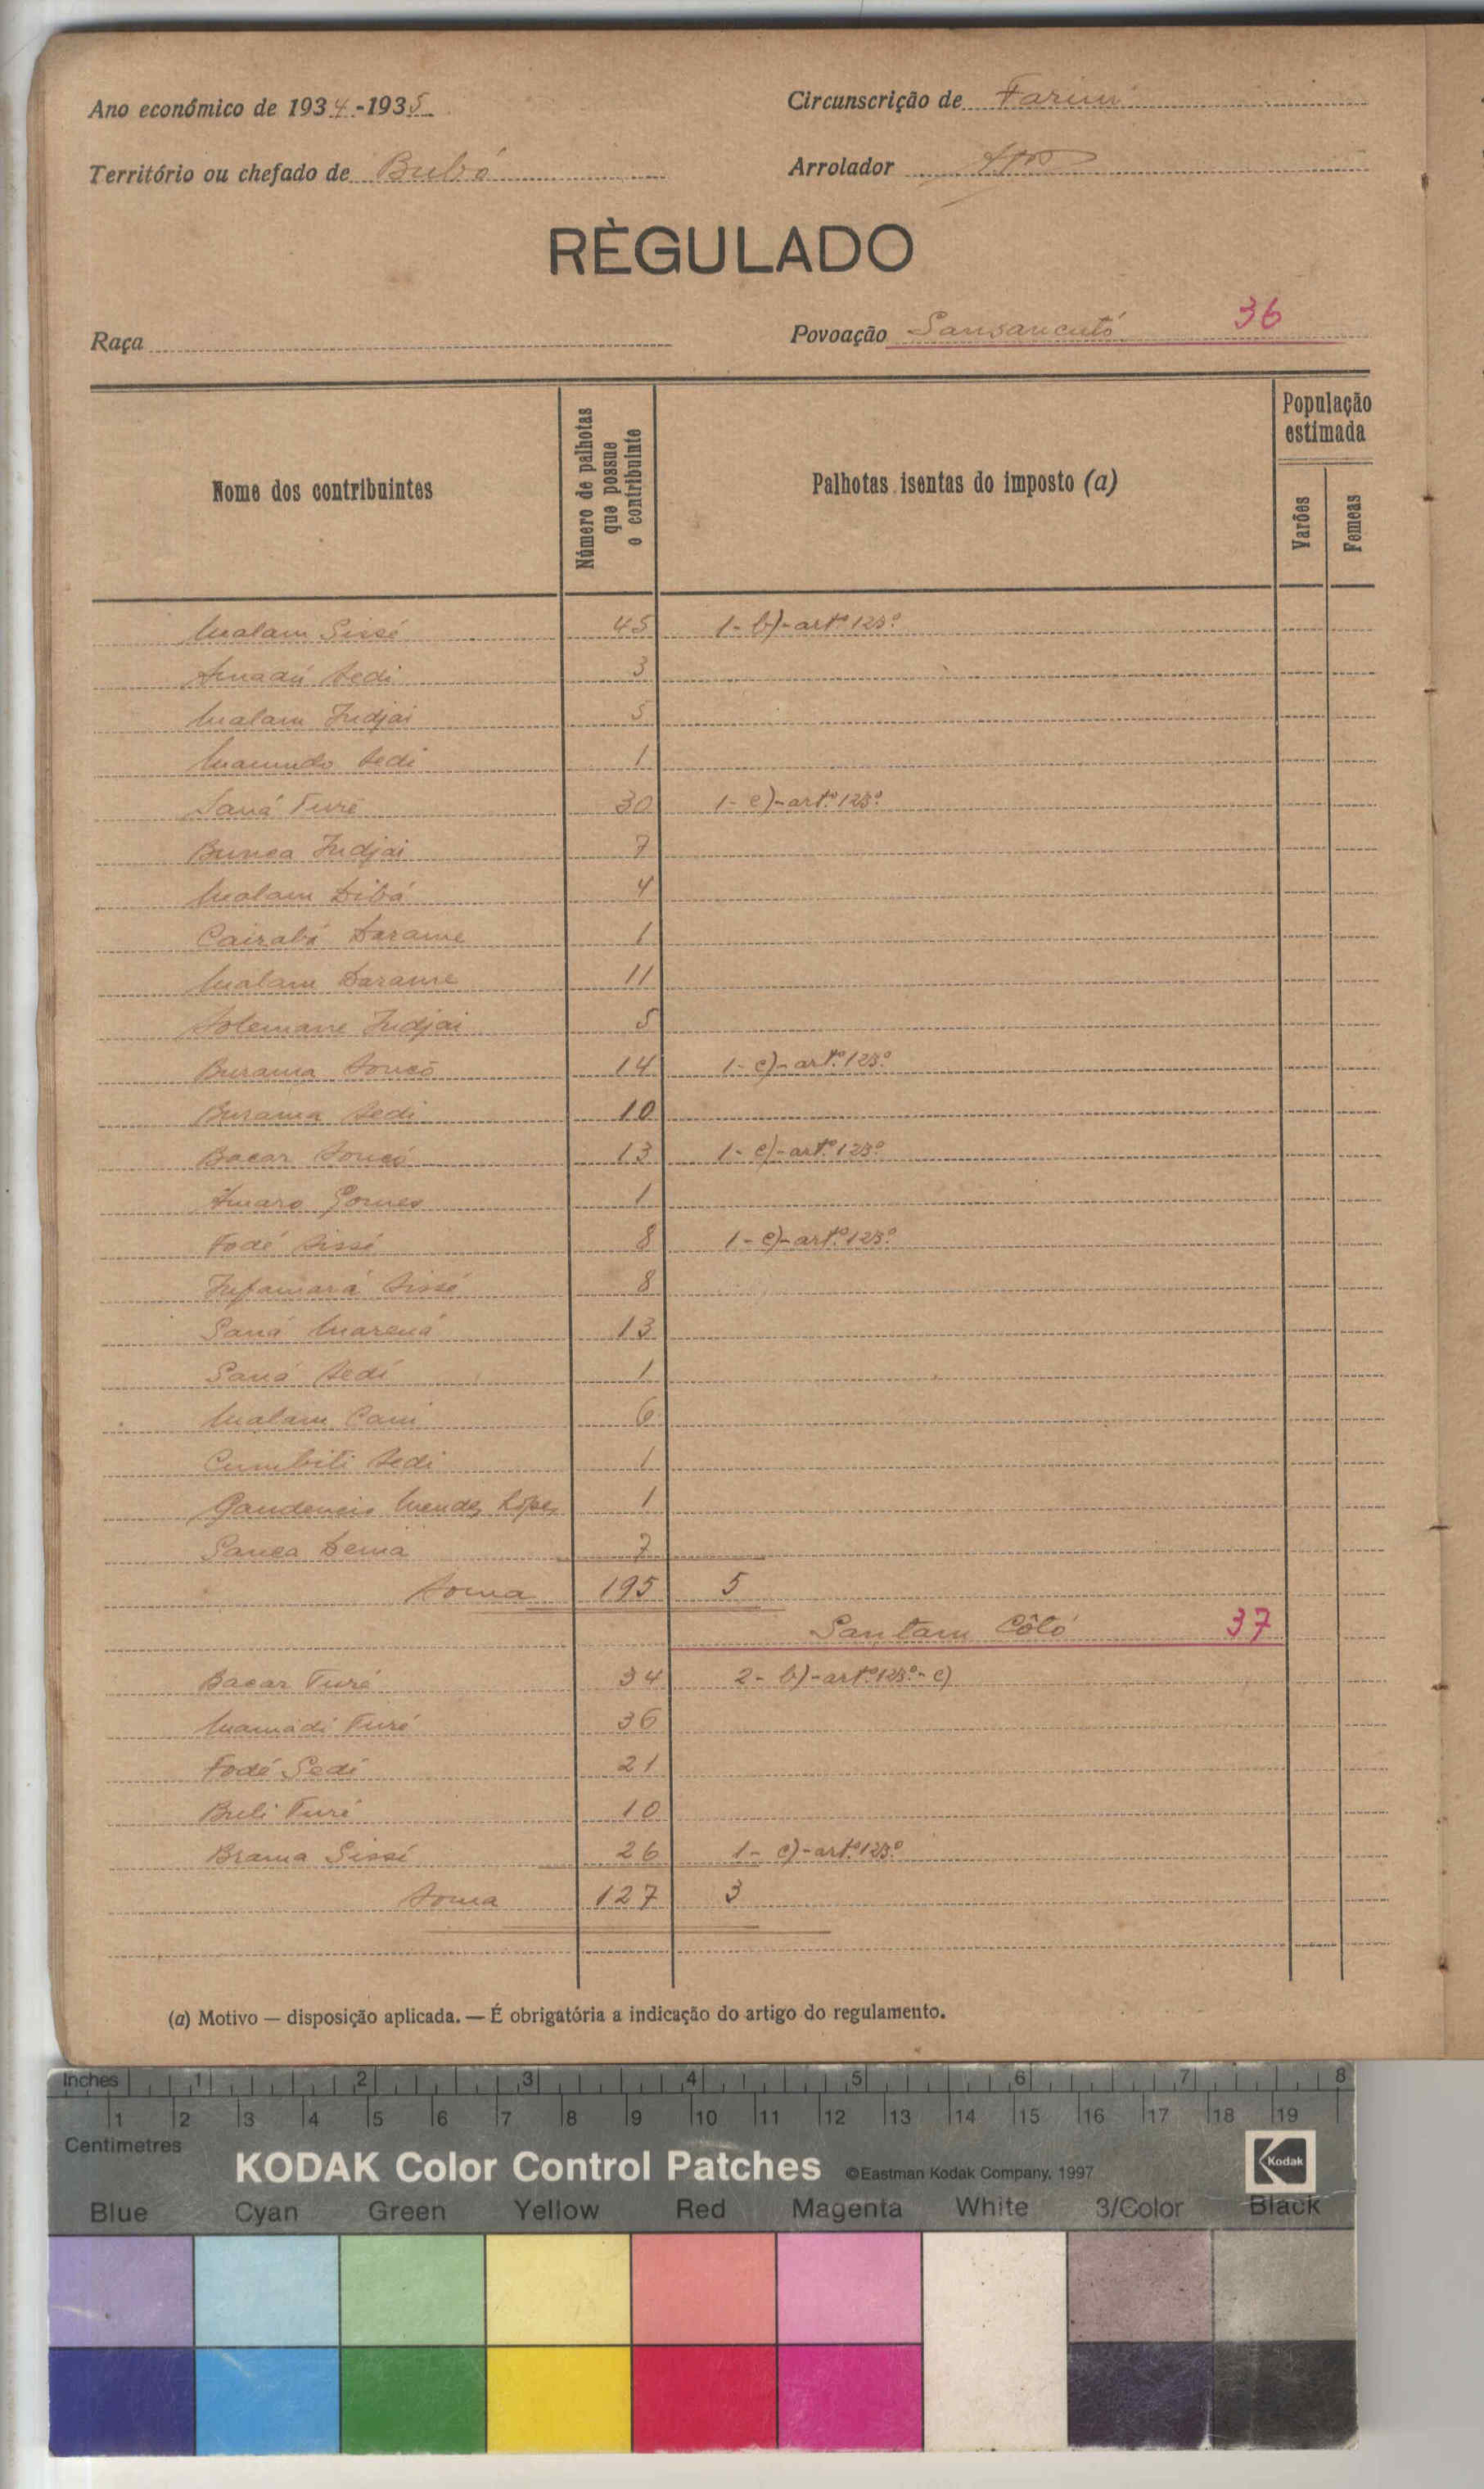 Ano económico de 1934-1935
Circunscrição de Farim
Território ou chefado de Bubó
Arrolador
RÈGULADO
Raça
Povoação Sansancutó 36
Nome dos contribuintes
Número de palhotas que possue o contribuinte
Palhotas isentas do imposto (a)
População estimada
Varões
Femeas
Malam Sissé 45 1- b)-artº 123º
Amadú Sedi 3
Malam Indjai 5
Mamudo Sedi 1
Saná Turé 30 1- c)-artº 123º
Bunca Indjai 7
Malam Dibá 4
Cairabá Darame 1
Malam Darame 11
Solemane Indjai 5
Burama Soncó 14 1- c)-artº 123º
Burama Sedi 10
Bacar Soncó 13 1- c)-artº 123º
Amaro Gomes 1
Fodé Sissé 8 1- c)-artº 123º
Infamará Sissé 8
Saná Marená 13
Saná Sedi 1
Malam Cani 6
Cumbiti Sedi 1
Gaudencio Mendes Lopes 1
Sanca Demá 7
Soma 195 5
Santam Côtó 37
Bacar Turé 34 2- b)-artº 123º- c)
Mamadi Turé 36
Fodé Sedi 21
Buli Turé 10
Brama Sissé 26 1- c)-artº 123º
Soma 127 3
(a) Motivo — disposição aplicada. — É obrigatória a indicação do artigo do regulamento.
Inches 1 2 3 4 5 6 7 8
1 2 3 4 5 6 7 8 9 10 11 12 13 14 15 16 17 18 19
Centimetres
KODAK Color Control Patches ©Eastman Kodak Company, 1997 Kodak
Blue Cyan Green Yellow Red Magenta White 3/Color Black